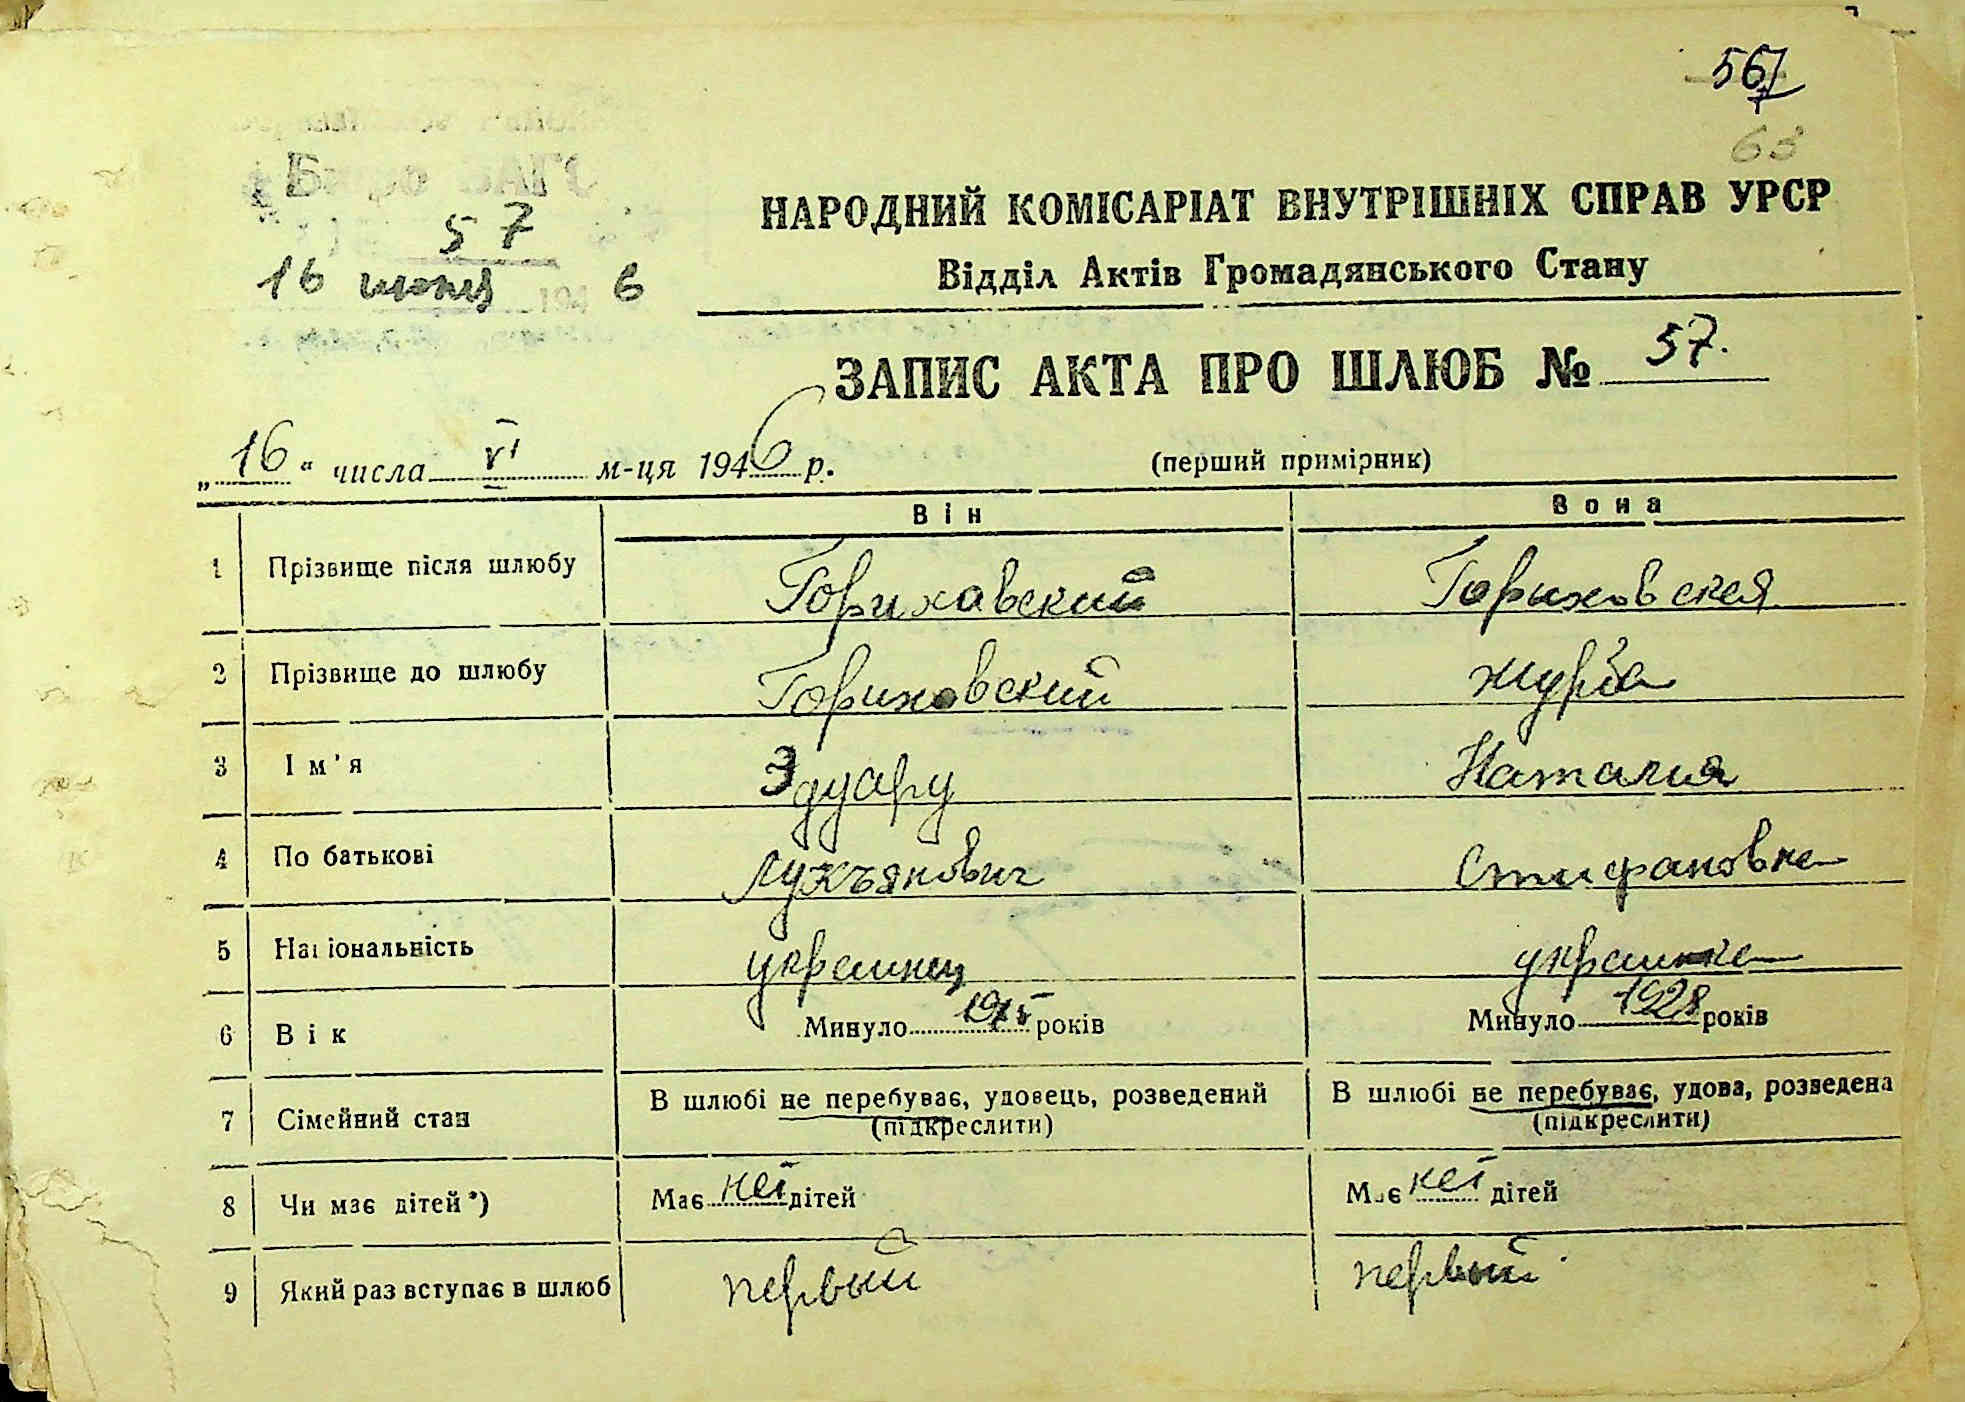 567
63
57
16 июня 194 6
НАРОДНИЙ КОМІСАРІАТ ВНУТРІШНІХ СПРАВ УРСР
Відділ Актів Громадянського Стану
ЗАПИС АКТА ПРО ШЛЮБ № 57.
„16“ числа VI м-ця 1946 р. (перший примірник)
Він Вона
1 Прізвище після шлюбу Горихавский Горыховская
2 Прізвище до шлюбу Гориховский Журба
3 Ім'я Эдуард Наталия
4 По батькові Лукъянович Стифановна
5 Національність украинец украинка
6 Вік Минуло років Минуло 1928 років
7 Сімейний стан В шлюбі не перебуває, удовець, розведений (підкреслити) В шлюбі не перебуває, удова, розведена (підкреслити)
8 Чи має дітей*) Має неї дітей Має неї дітей
9 Який раз вступає в шлюб первый первый